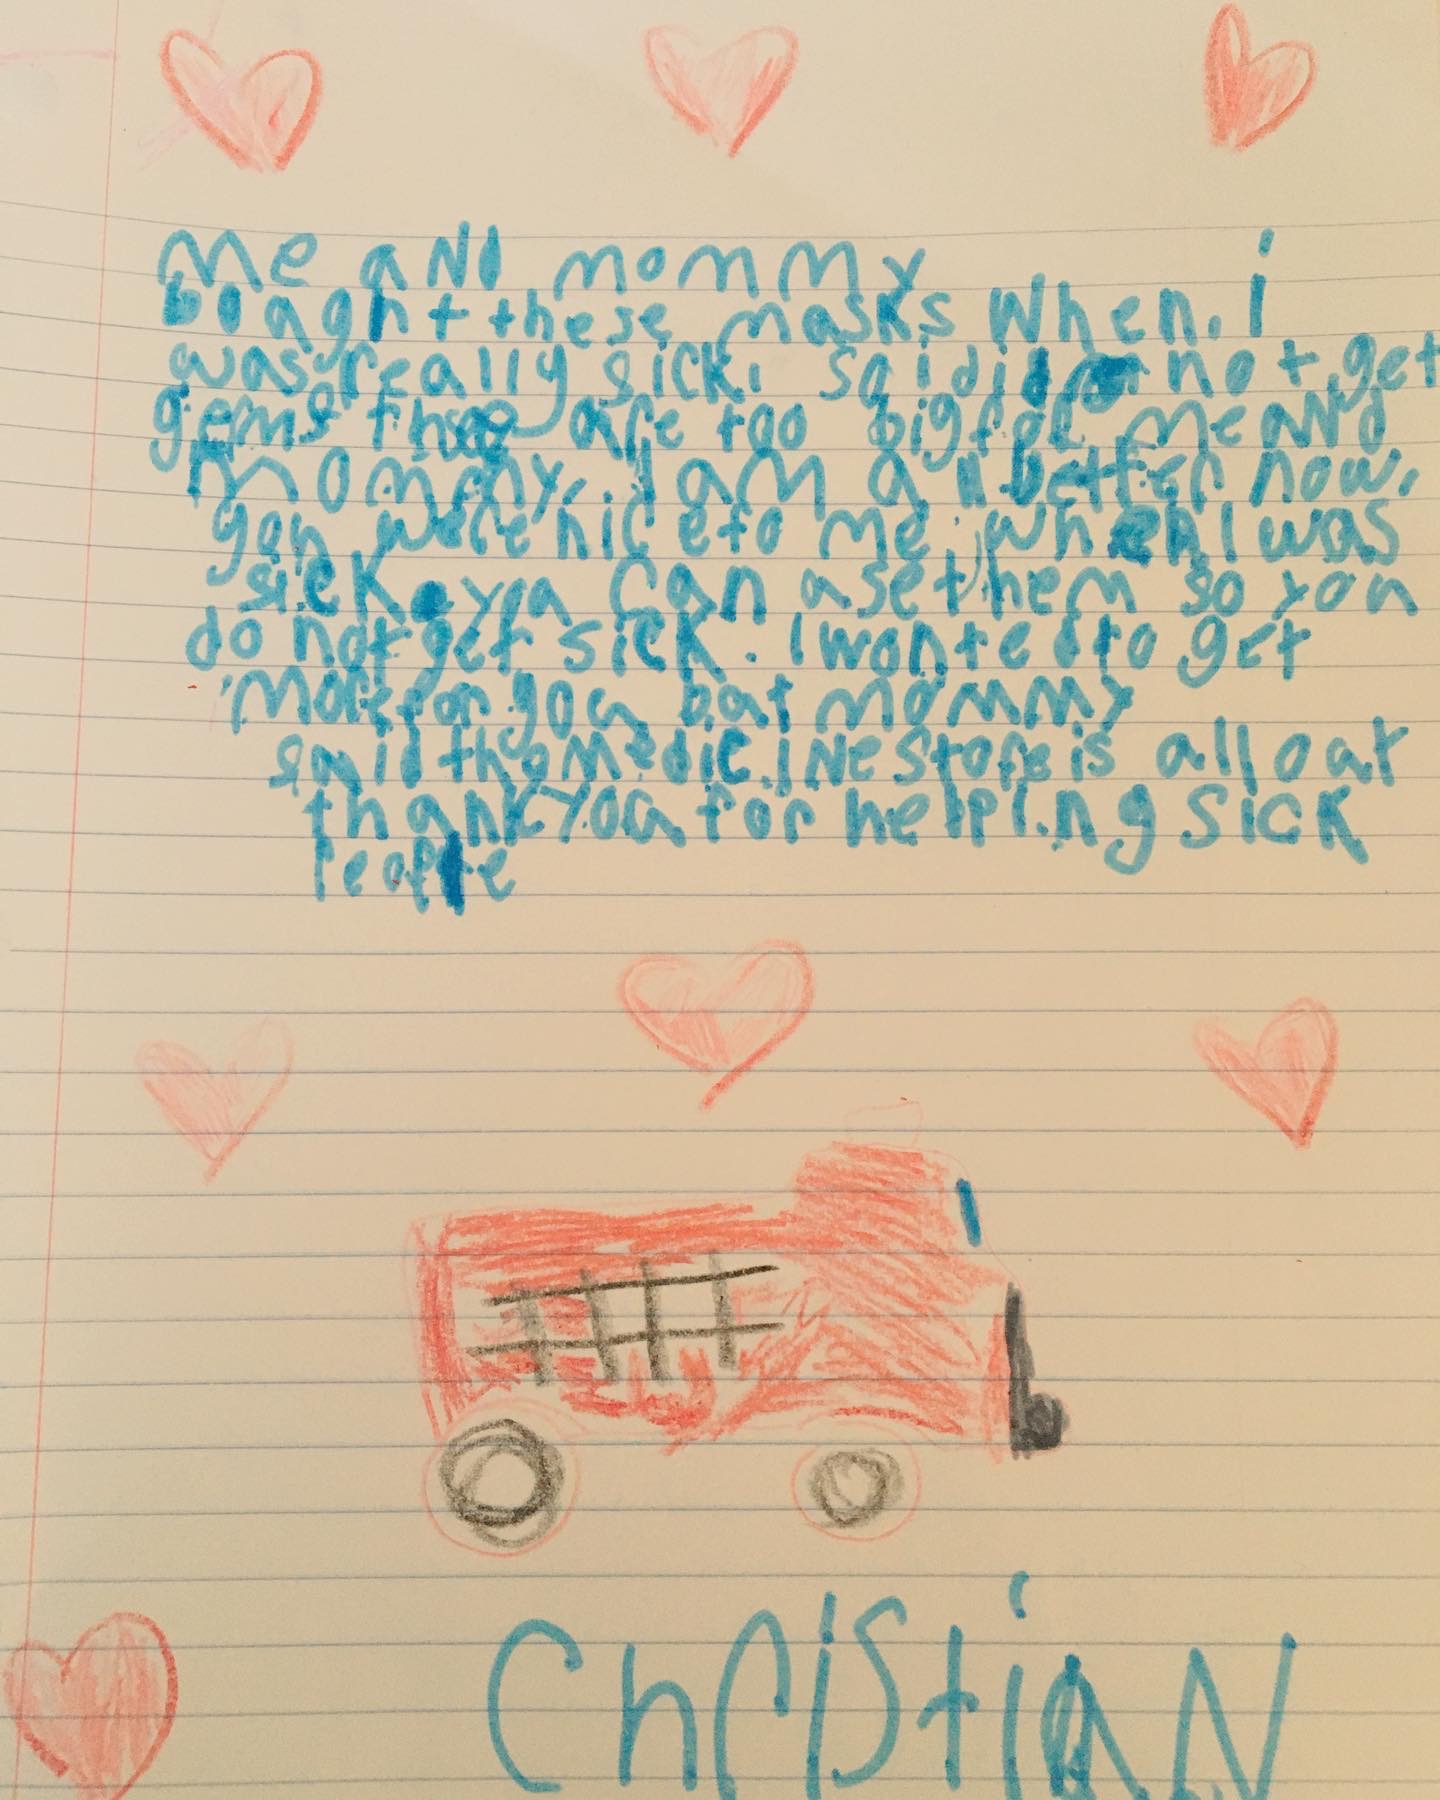 Me aNd mommy
boaght these masks when. i
was really sick. so i did not get
gems these are too big for me aNd
mommy. I am all better now.
you were nice to me when I was
sick. you can ase them so you
do not get sick. I wanted to get
more for you bat mommy
said the medicine store is all oat
thank you for helping sick
people
ChristiaN